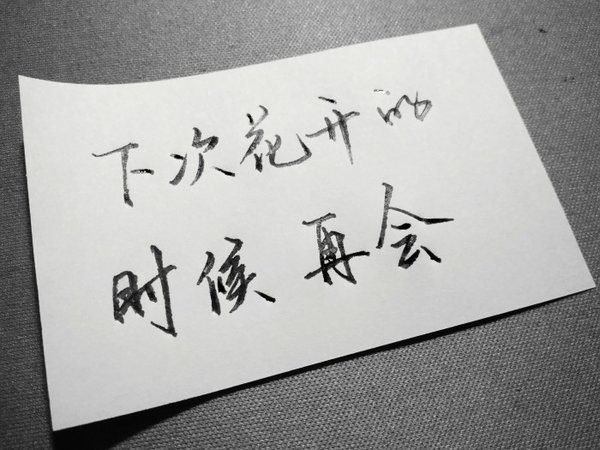 下次花开的
时候 再会